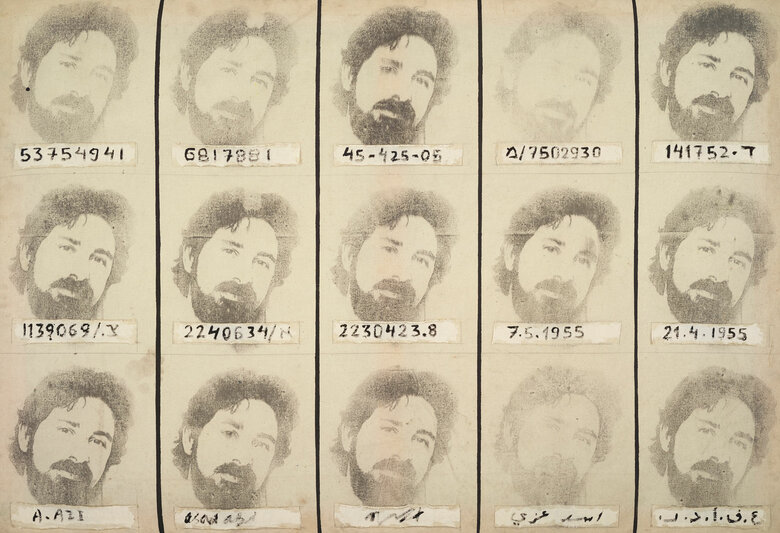 53754941
6817881
45-425-05
מ/7502930
141752.ד
1139069/.צ
2240634/א
2230423.8
7.5.1955
21.4.1955
A. AZI
asad azi
اسد عزي
ع.ف.أ.د.ب.